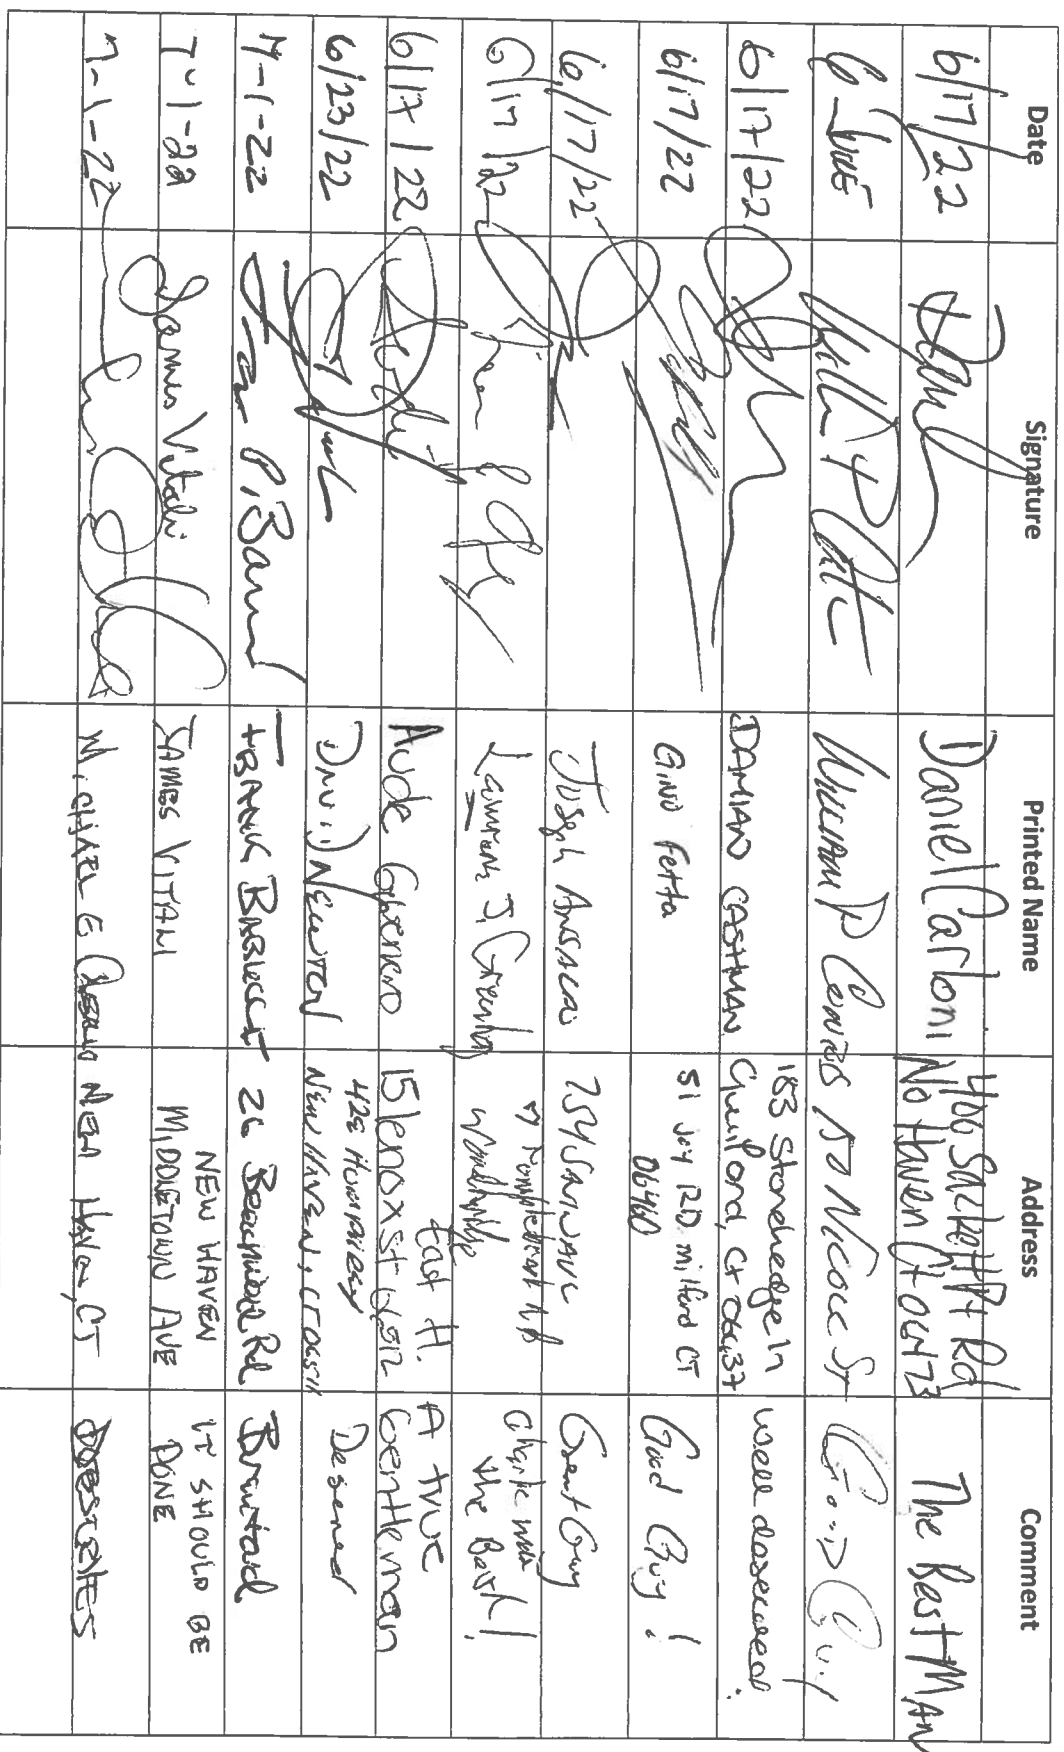 Date Signature Printed Name Address Comment
6/17/22 Daniel Carboni 400 Sackett Pt Rd
No Haven Ct 06473 The Best MAN
6-JUNE WILLIAM P 150 NICOLE ST GOOD GUY
6/17/22 DAMIAN CASHMAN 183 Stonehedge ln
Guilford, Ct 06437 well deserved.
6/17/22 GINO Fetta 51 Joy RD. milford CT
06460 Good Guy!
6/17/22 Joseph Great Guy
6/17/22 Lawrence J. Greenberg
Woodbridge Charlie was
the Best!
6/17/22 Aude 15 lenox St East H.
06512 A true
Gentleman
6/23/22 DAVID NEWTON 428 HUMPHREY
NEW HAVEN, CT 06511 Deserved
7-1-22 FRANK 26 Rd
7-1-22 James Vitali JAMES VITALI NEW HAVEN
MIDDLETOWN AVE IT SHOULD BE
DONE
7-1-22 MICHAEL E NEW HAVEN, CT DESERVES